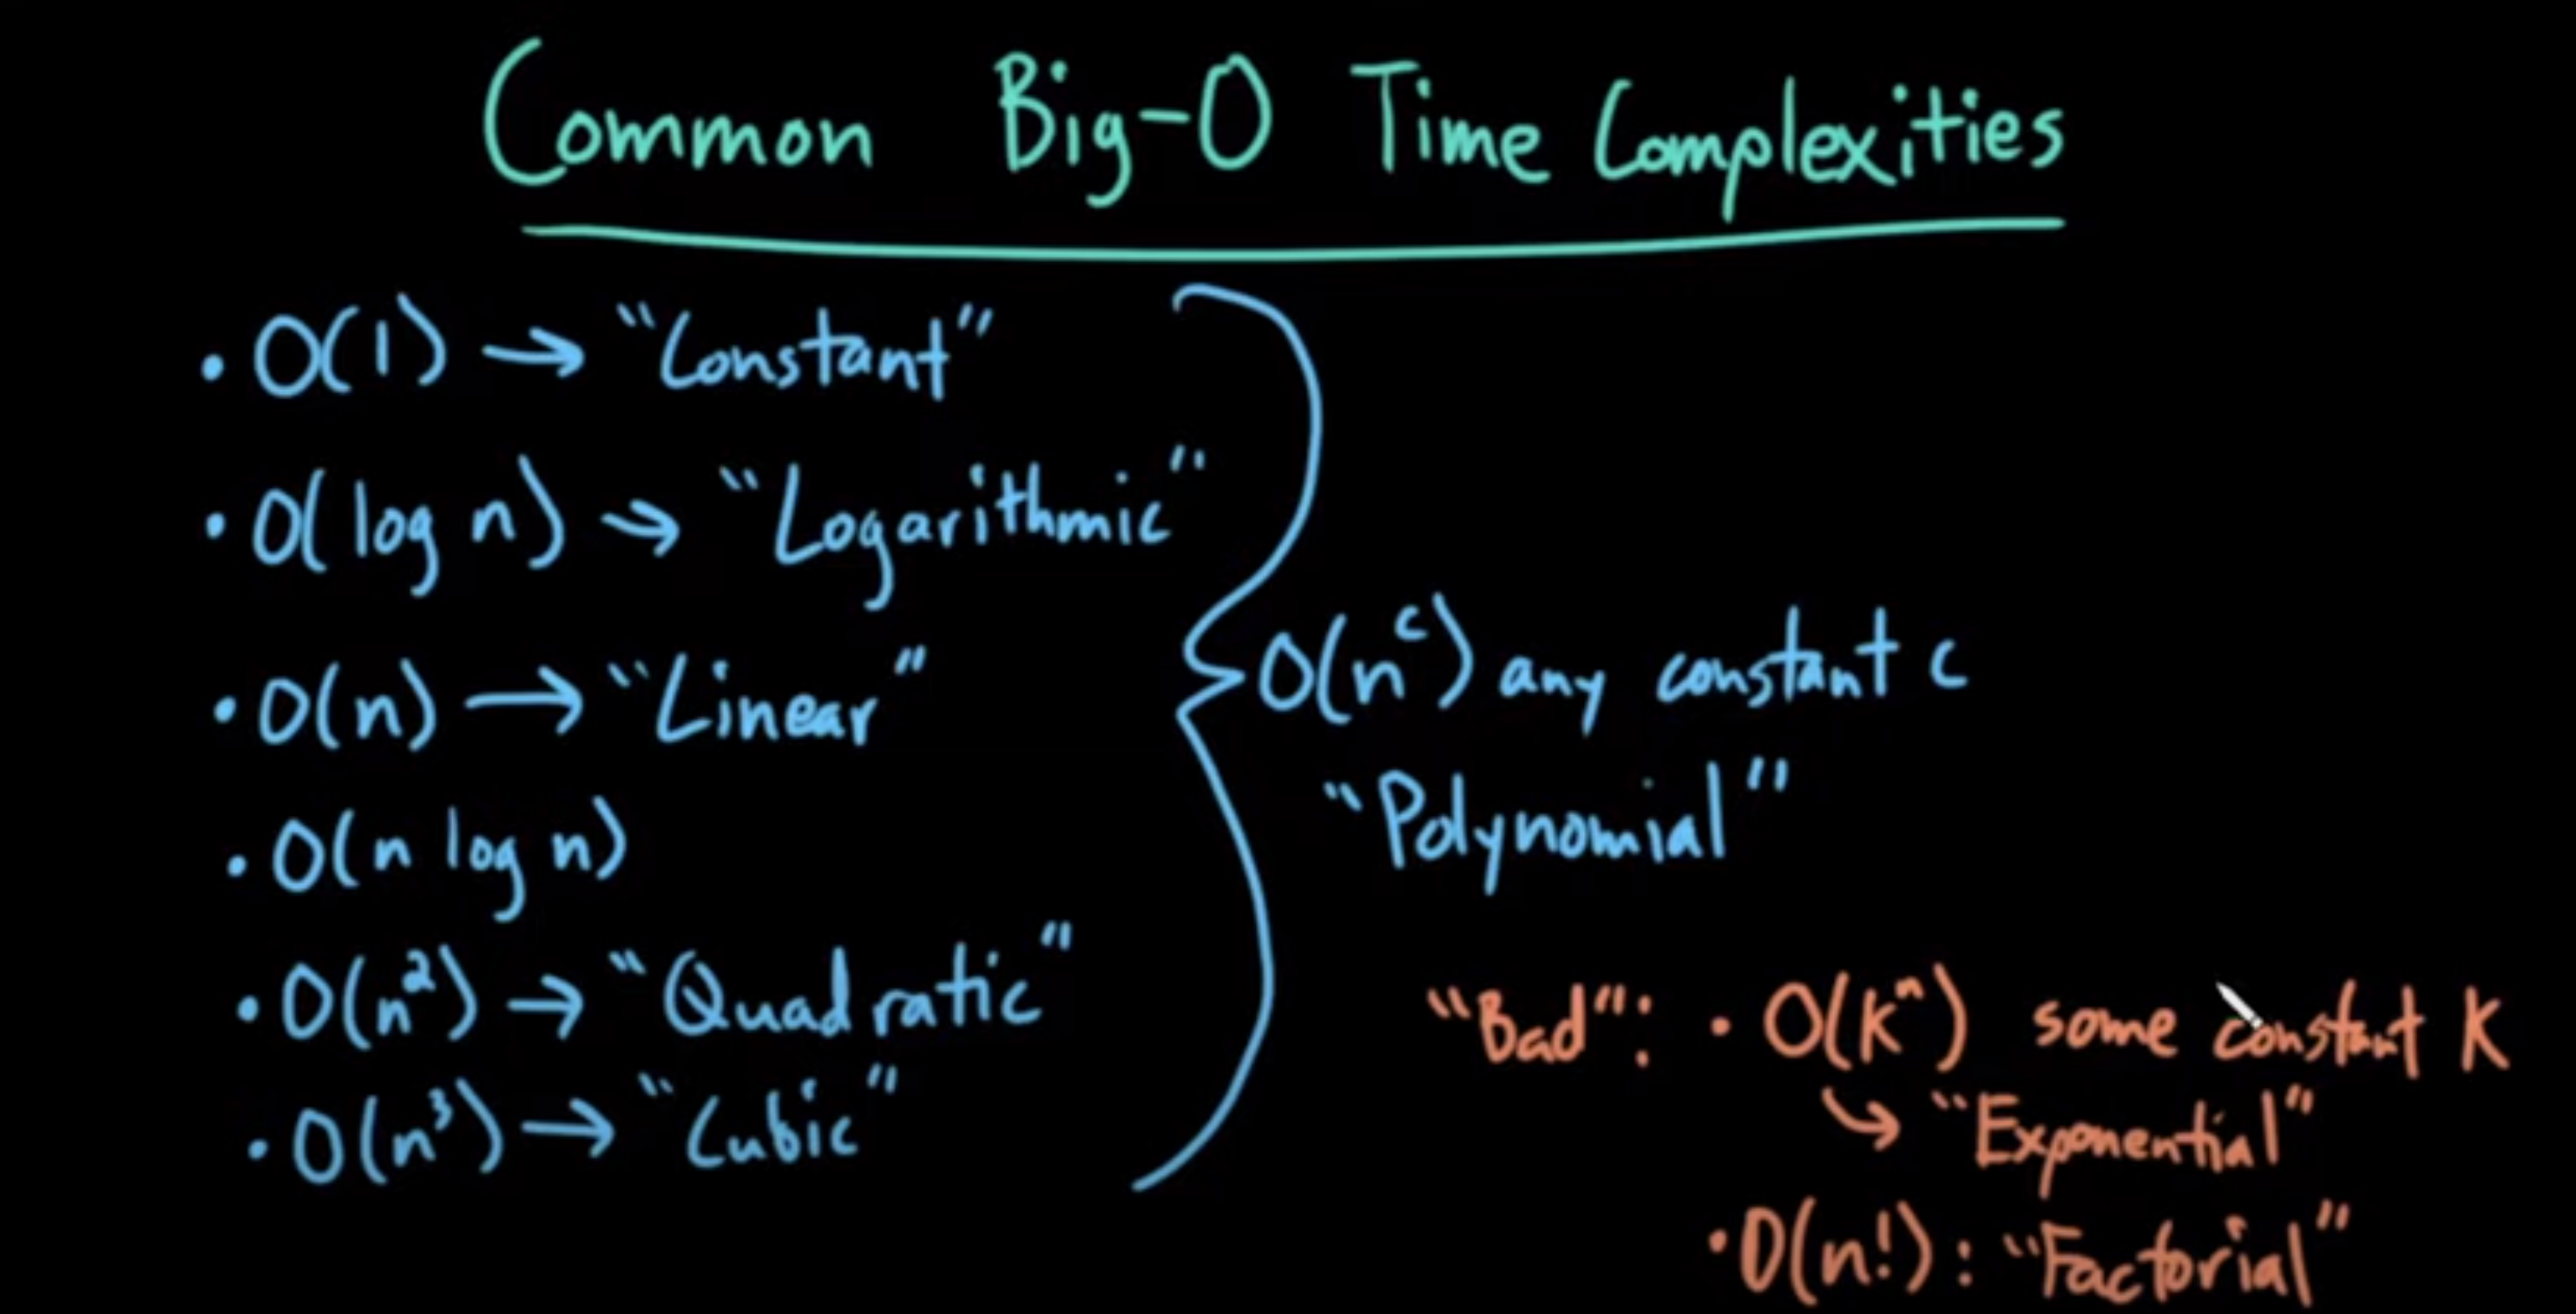 Common Big-O Time Complexities
• O(1) → "Constant"
• O(log n) → "Logarithmic"
• O(n) → "Linear"
• O(n log n)
• O(n²) → "Quadratic"
• O(n³) → "Cubic"
O(nᶜ) any constant c
"Polynomial"
"Bad": • O(kⁿ) some constant k
↳ "Exponential"
• O(n!) : "Factorial"